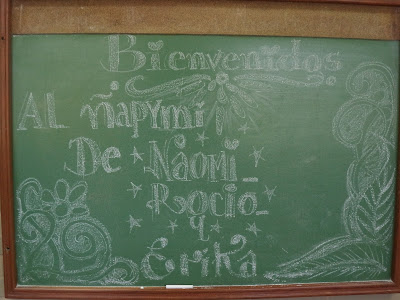 Bienvenidos
AL ñapymi
De Naomi
Rocio
y
Erika